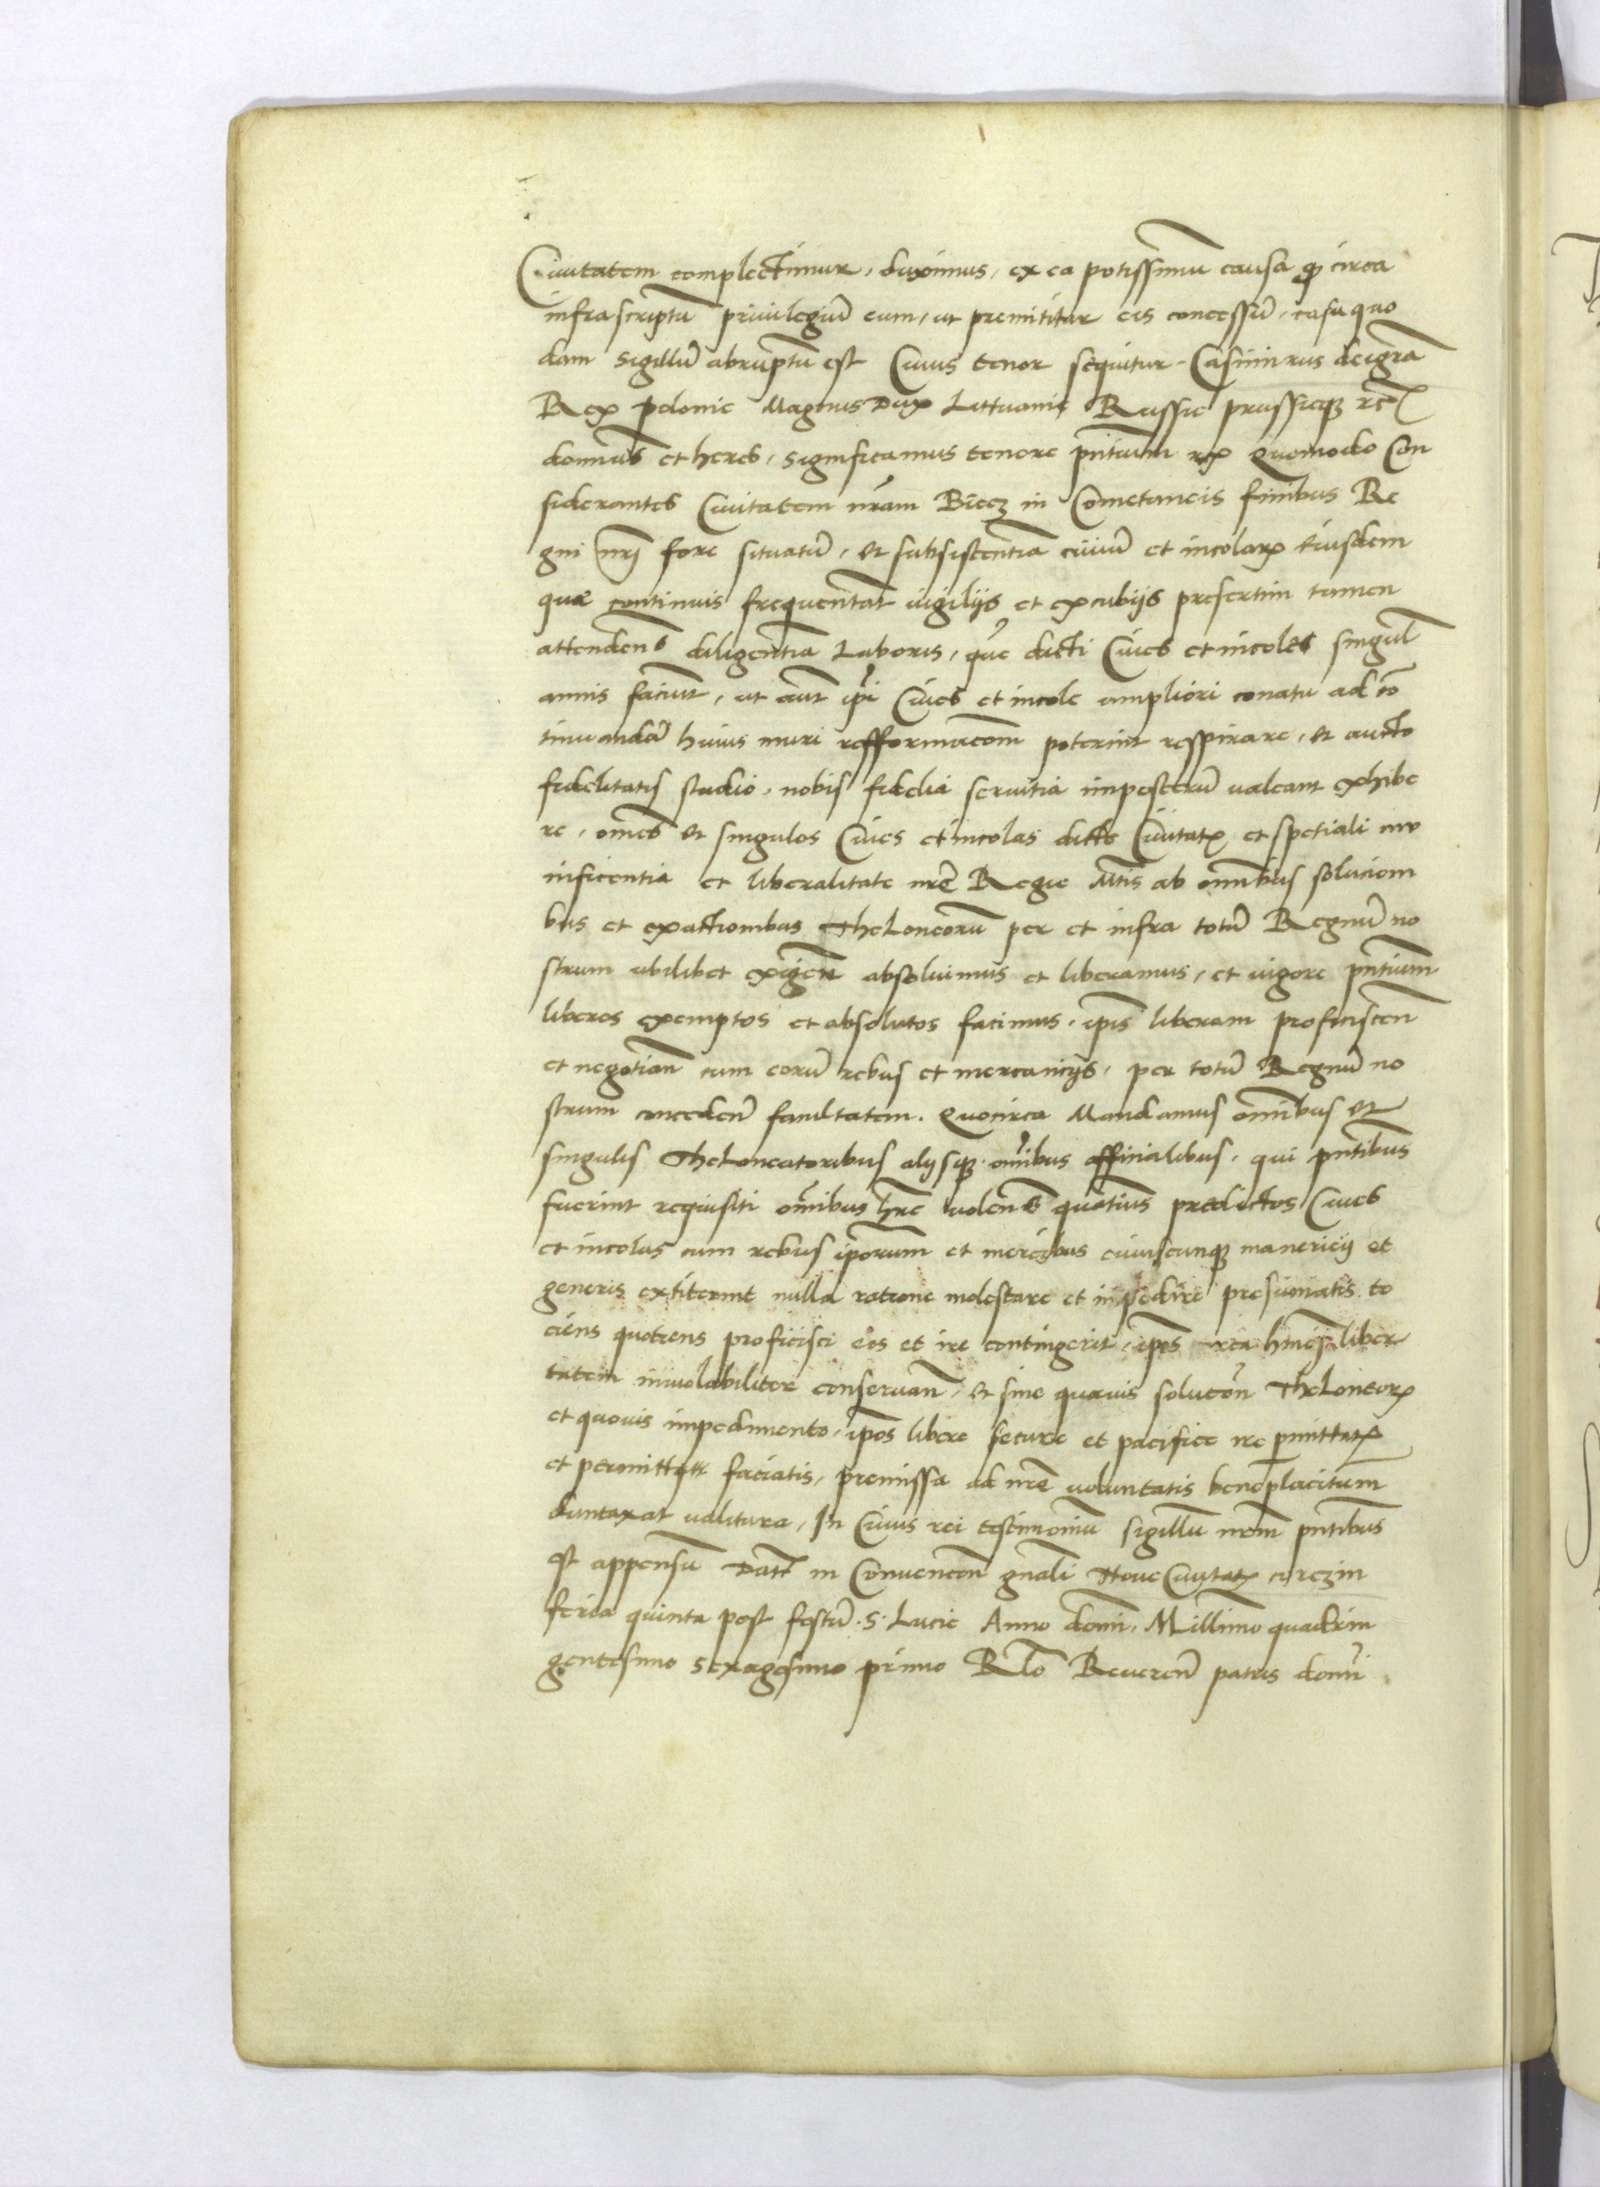 Ciuitatem complectimur, duximus, ex ea potissimu causa qz circa
infrascriptu priuilegiu eum, ut premititur eis concessu, casu quo
dam sigillu abruptu est Cuius tenor sequitur. Casimirus dei gra
Rex polonie Magnus Dux Littuanie Russie prussieqz
domnus et heres, significamus tenore pntium Quomodo Con
siderantes Ciuitatem nram Biecz in Cometaneis finibus Re
gni nri fore situatu, et subsistentia ciuiu et incolarz eiusdem
quae continuis frequentat uigilijs et excubijs presertim tamen
attenden diligentia Laboris, que dicti Ciues et incoles singul
annis faciunt, ut aut ipi Ciues et incole ampliori conatu ad co
tinuanda huius muri refformacom poterint respirare, et aucto
fidelitatis studio, nobis fidelia seruitia imposteru ualeant exhibe
re, omes et singulos Ciues et incolas dicte Ciuitatz et spetiali mu
nificentia et liberalitate nre Regie Mtis ab omnibus solucioni
bus et exactionibus Theloneoru per et infra totu Regnu no
strum ubilibet exigen absoluimus et liberamus, et uigore pntium
liberos exemptos et absolutos facimus, ipis liberam proficiscen
et negotian cum eoru rebus et mercancijs, per totu Regnu no
strum conceden facultatem. Quocirca Mandamus omnibus et
singulis Theloneatoribus alijsqz omnibus officialibus, qui pntibus
fuerint requisiti omnibus hre uolen quatius predictos Ciues
et incolas cum rebus iporum et mercibus cuiuscunqz maneriei et
generis extiterint nulla ratione molestare et inpedire presumatis to
ciens quotiens proficisci eos et ire contingerit, ipos liber
tatem inuiolabiliter conseruan, et sine quauis solucon Theloneorz
et quouis impedimento, ipos libere secure et pacifice ire pmittatz
et permitti faciatis, premissa ad nre uoluntatis beneplacitum
duntaxat ualitura, In Cuius rei testimoniu sigillu nrm pntibus
est appensu Datt in Conuencon gnali Noue Ciuitatz corczin
feria quinta post festu S. Lucie Anno domi. Millimo quadrin
gentesimo sexagesimo primo Rlo Reueren patris domi